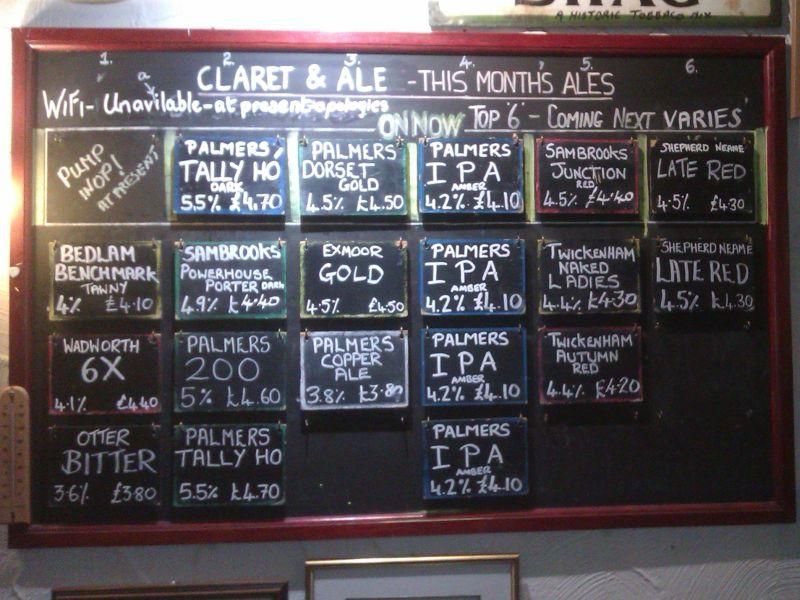 A HISTORIC TOBBACO MIX
1. 2. 3. 4. 5. 6.
CLARET & ALE - THIS MONTH'S ALES
a
WiFi - Unavilable - at present apologies
ON NOW TOP '6' - COMING NEXT VARIES'
PUMP
INOP!
AT PRESENT
PALMERS
TALLY HO
DARK
5.5% £4.70
PALMERS
DORSET
GOLD
4.5% £4.50
PALMERS
IPA
AMBER
4.2% £4.10
SAMBROOKS
JUNCTION
RED
4.5% £4.40
SHEPHERD NEAME
LATE RED
4.5% £4.30
BEDLAM
BENCHMARK
TAWNY
4% £4.10
SAMBROOKS
POWERHOUSE
PORTER DARK
4.9% £4.40
EXMOOR
GOLD
4.5% £4.50
PALMERS
IPA
AMBER
4.2% £4.10
TWICKENHAM
NAKED
LADIES
4.4% £4.30
SHEPHERD NEAME
LATE RED
4.5% £4.30
WADWORTH
6X
4.1% £4.40
PALMERS
200
5% £4.60
PALMERS
COPPER
ALE
3.8% £3.80
PALMERS
IPA
AMBER
4.2% £4.10
TWICKENHAM
AUTUMN
RED
4.4% £4.20
OTTER
BITTER
3.6% £3.80
PALMERS
TALLY HO
5.5% £4.70
PALMERS
IPA
AMBER
4.2% £4.10